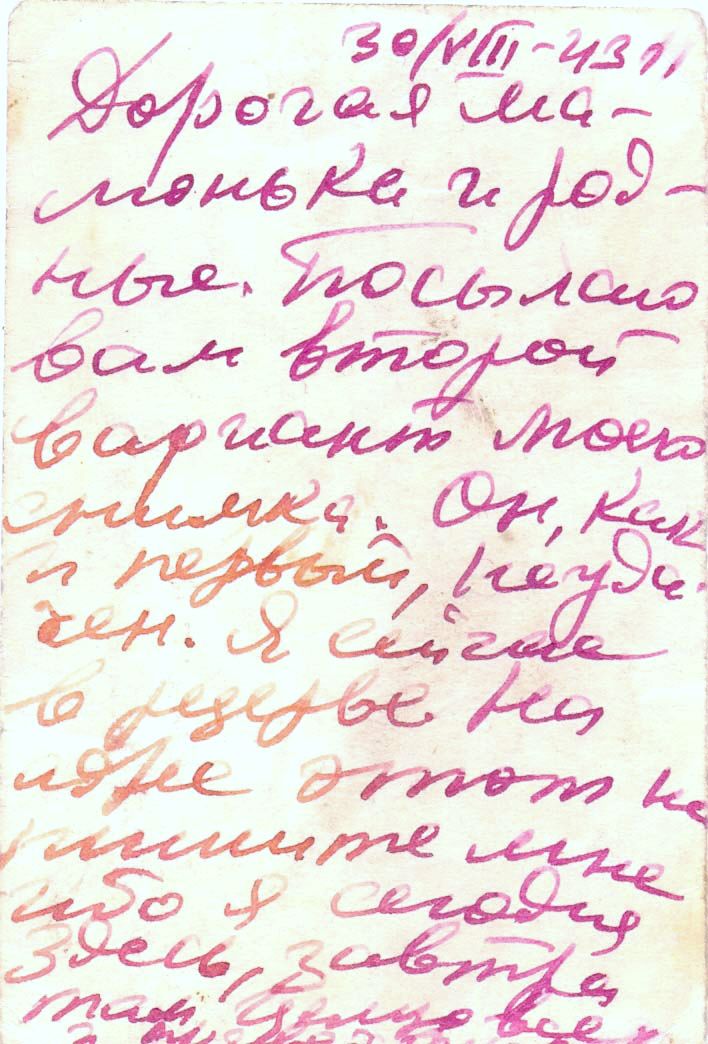 30/VIII-43 г.
Дорогая ма-
монька и род-
ные. Посылаю
вам второй
вариант моего
снимка. Он, как
и первый, неуда-
чен. Я сейчас
в резерве на
адрес этот не
пишите мне
ибо я сегодня
здесь, завтра
там Целую всех